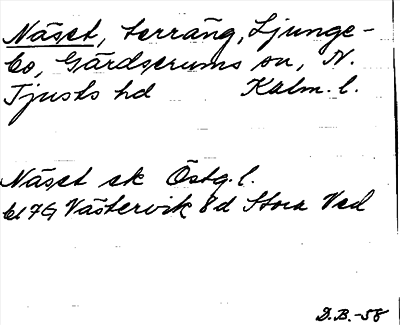 Näset, terräng, Ljunge-
bo, Gärdserums sn, N.
Tjusts hd Kalm. l.
Näset ek Östg. l.
bl 7G Västervik 8d Stora Ved
D.B.-58